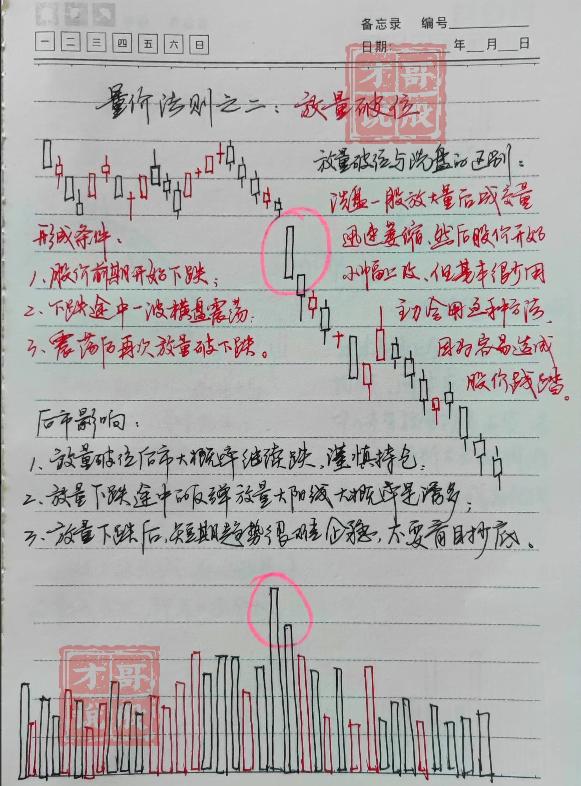 备忘录 编号
一 二 三 四 五 六 日
日期 年 月 日
量价法则之二：放量破位
放量破位与洗盘的区别：
洗盘一般放大量后成交量
迅速萎缩、然后股价开始
小幅上攻、但基本很少用
主力会用这种方法、
因为容易造成
股价践踏。
形成条件：
1、股价前期开始下跌；
2、下跌途中一波横盘震荡；
3、震荡后再次放量破下跌。
后市影响：
1、放量破位后市大概率继续跌，谨慎持仓；
2、放量下跌途中的反弹放量大阳线大概率是诱多；
3、放量下跌后，短期趋势很难企稳，不要盲目抄底。
才哥
说戒
才哥